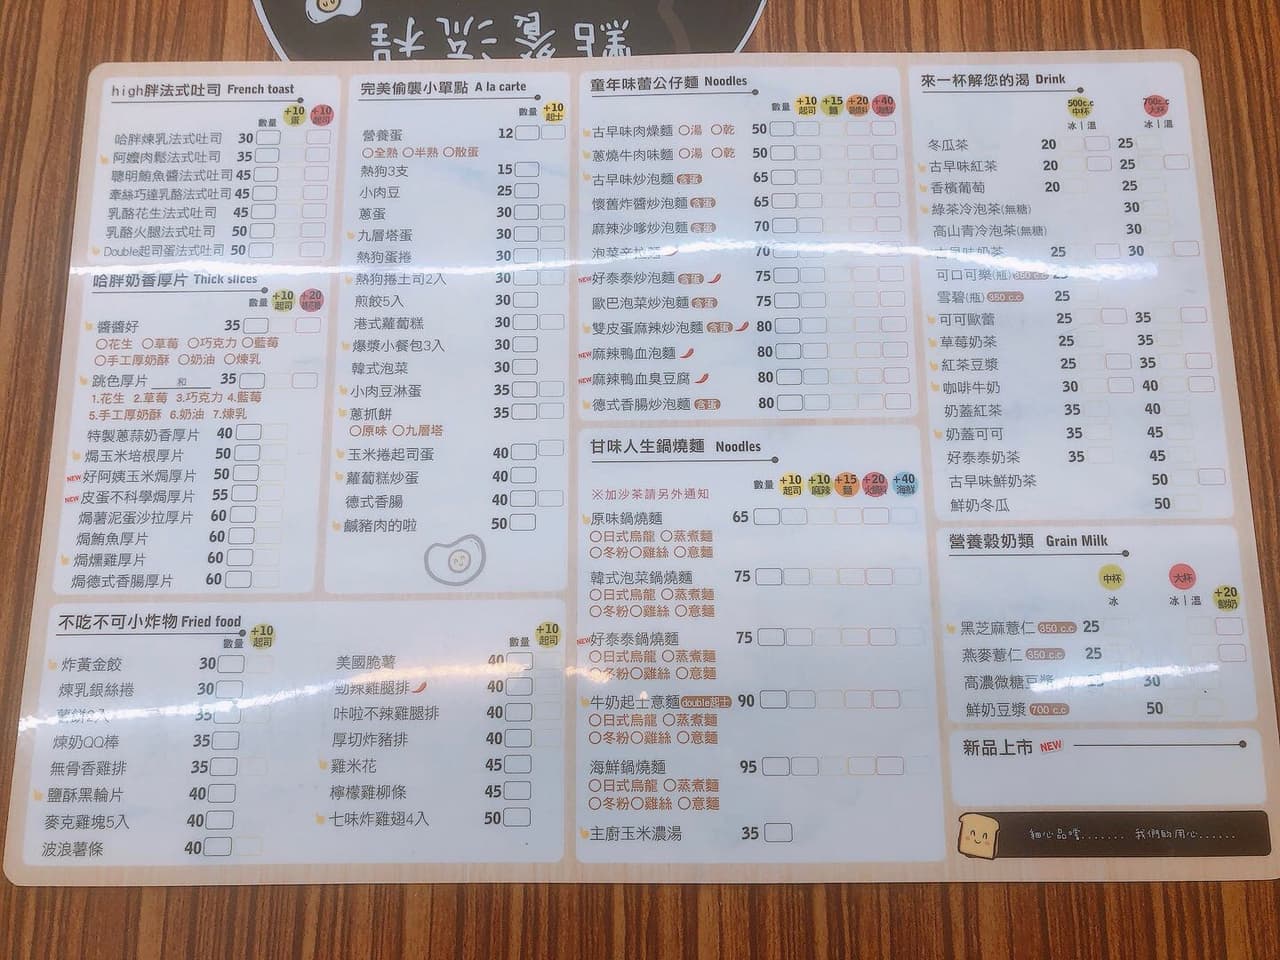 點餐流程
high胖法式吐司 French toast
數量 +10 蛋 +10 起司
哈胖煉乳法式吐司 30
阿嬤肉鬆法式吐司 35
聰明鮪魚醬法式吐司 45
牽絲巧達乳酪法式吐司 45
乳酪花生法式吐司 45
乳酪火腿法式吐司 50
Double起司蛋法式吐司 50
哈胖奶香厚片 Thick slices
數量 +10 起司 +20
醬醬好 35
○花生 ○草莓 ○巧克力 ○藍莓
○手工厚奶酥 ○奶油 ○煉乳
跳色厚片 ___和___ 35
1.花生 2.草莓 3.巧克力 4.藍莓
5.手工厚奶酥 6.奶油 7.煉乳
特製蔥蒜奶香厚片 40
焗玉米培根厚片 50
NEW 好阿姨玉米焗厚片 50
NEW 皮蛋不科學焗厚片 55
焗薯泥蛋沙拉厚片 60
焗鮪魚厚片 60
焗燻雞厚片 60
焗德式香腸厚片 60
完美偷襲小單點 A la carte
數量 +10 起士
營養蛋 12
○全熟 ○半熟 ○散蛋
熱狗3支 15
小肉豆 25
蔥蛋 30
九層塔蛋 30
熱狗蛋捲 30
熱狗捲土司2入 30
煎餃5入 30
港式蘿蔔糕 30
爆漿小餐包3入 30
韓式泡菜 30
小肉豆淋蛋 35
蔥抓餅 35
○原味 ○九層塔
玉米捲起司蛋 40
蘿蔔糕炒蛋 40
德式香腸 40
鹹豬肉的啦 50
不吃不可小炸物 Fried food
數量 +10 起司
炸黃金餃 30
煉乳銀絲捲 30
薯餅2入 35
煉奶QQ棒 35
無骨香雞排 35
鹽酥黑輪片 40
麥克雞塊5入 40
波浪薯條 40
數量 +10 起司
美國脆薯 40
勁辣雞腿排 40
咔啦不辣雞腿排 40
厚切炸豬排 40
雞米花 45
檸檬雞柳條 45
七味炸雞翅4入 50
童年味蕾公仔麵 Noodles
數量 +10 起司 +15 麵 +20 +40 海鮮
古早味肉燥麵 ○湯 ○乾 50
蔥燒牛肉味麵 ○湯 ○乾 50
古早味炒泡麵 含蛋 65
懷舊炸醬炒泡麵 含蛋 65
麻辣沙嗲炒泡麵 含蛋 70
泡菜辛拉麵 70
NEW 好泰泰炒泡麵 含蛋 75
歐巴泡菜炒泡麵 含蛋 75
雙皮蛋麻辣炒泡麵 含蛋 80
NEW 麻辣鴨血泡麵 80
NEW 麻辣鴨血臭豆腐 80
德式香腸炒泡麵 含蛋 80
甘味人生鍋燒麵 Noodles
※加沙茶請另外通知
數量 +10 起司 +10 麻辣 +15 麵 +20 火鍋料 +40 海鮮
原味鍋燒麵 65
○日式烏龍 ○蒸煮麵
○冬粉 ○雞絲 ○意麵
韓式泡菜鍋燒麵 75
○日式烏龍 ○蒸煮麵
○冬粉 ○雞絲 ○意麵
NEW 好泰泰鍋燒麵 75
○日式烏龍 ○蒸煮麵
○冬粉 ○雞絲 ○意麵
牛奶起士意麵 double起士 90
○日式烏龍 ○蒸煮麵
○冬粉 ○雞絲 ○意麵
海鮮鍋燒麵 95
○日式烏龍 ○蒸煮麵
○冬粉 ○雞絲 ○意麵
主廚玉米濃湯 35
來一杯解您的渴 Drink
500c.c 中杯 700c.c 大杯
冰 | 溫 冰 | 溫
冬瓜茶 20 25
古早味紅茶 20 25
香檳葡萄 20 25
綠茶冷泡茶(無糖) 30
高山青冷泡茶(無糖) 30
古早味奶茶 25 30
可口可樂(瓶) 350 c.c 25
雪碧(瓶) 350 c.c 25
可可歐蕾 25 35
草莓奶茶 25 35
紅茶豆漿 25 35
咖啡牛奶 30 40
奶蓋紅茶 35 40
奶蓋可可 35 45
好泰泰奶茶 35 45
古早味鮮奶茶 50
鮮奶冬瓜 50
營養穀奶類 Grain Milk
中杯 大杯 +20 鮮奶
冰 冰 | 溫
黑芝麻薏仁 350 c.c 25
燕麥薏仁 350 c.c 25
高濃微糖豆漿 25 30
鮮奶豆漿 700 c.c 50
新品上市 NEW
細心品嚐....... 我們的用心......